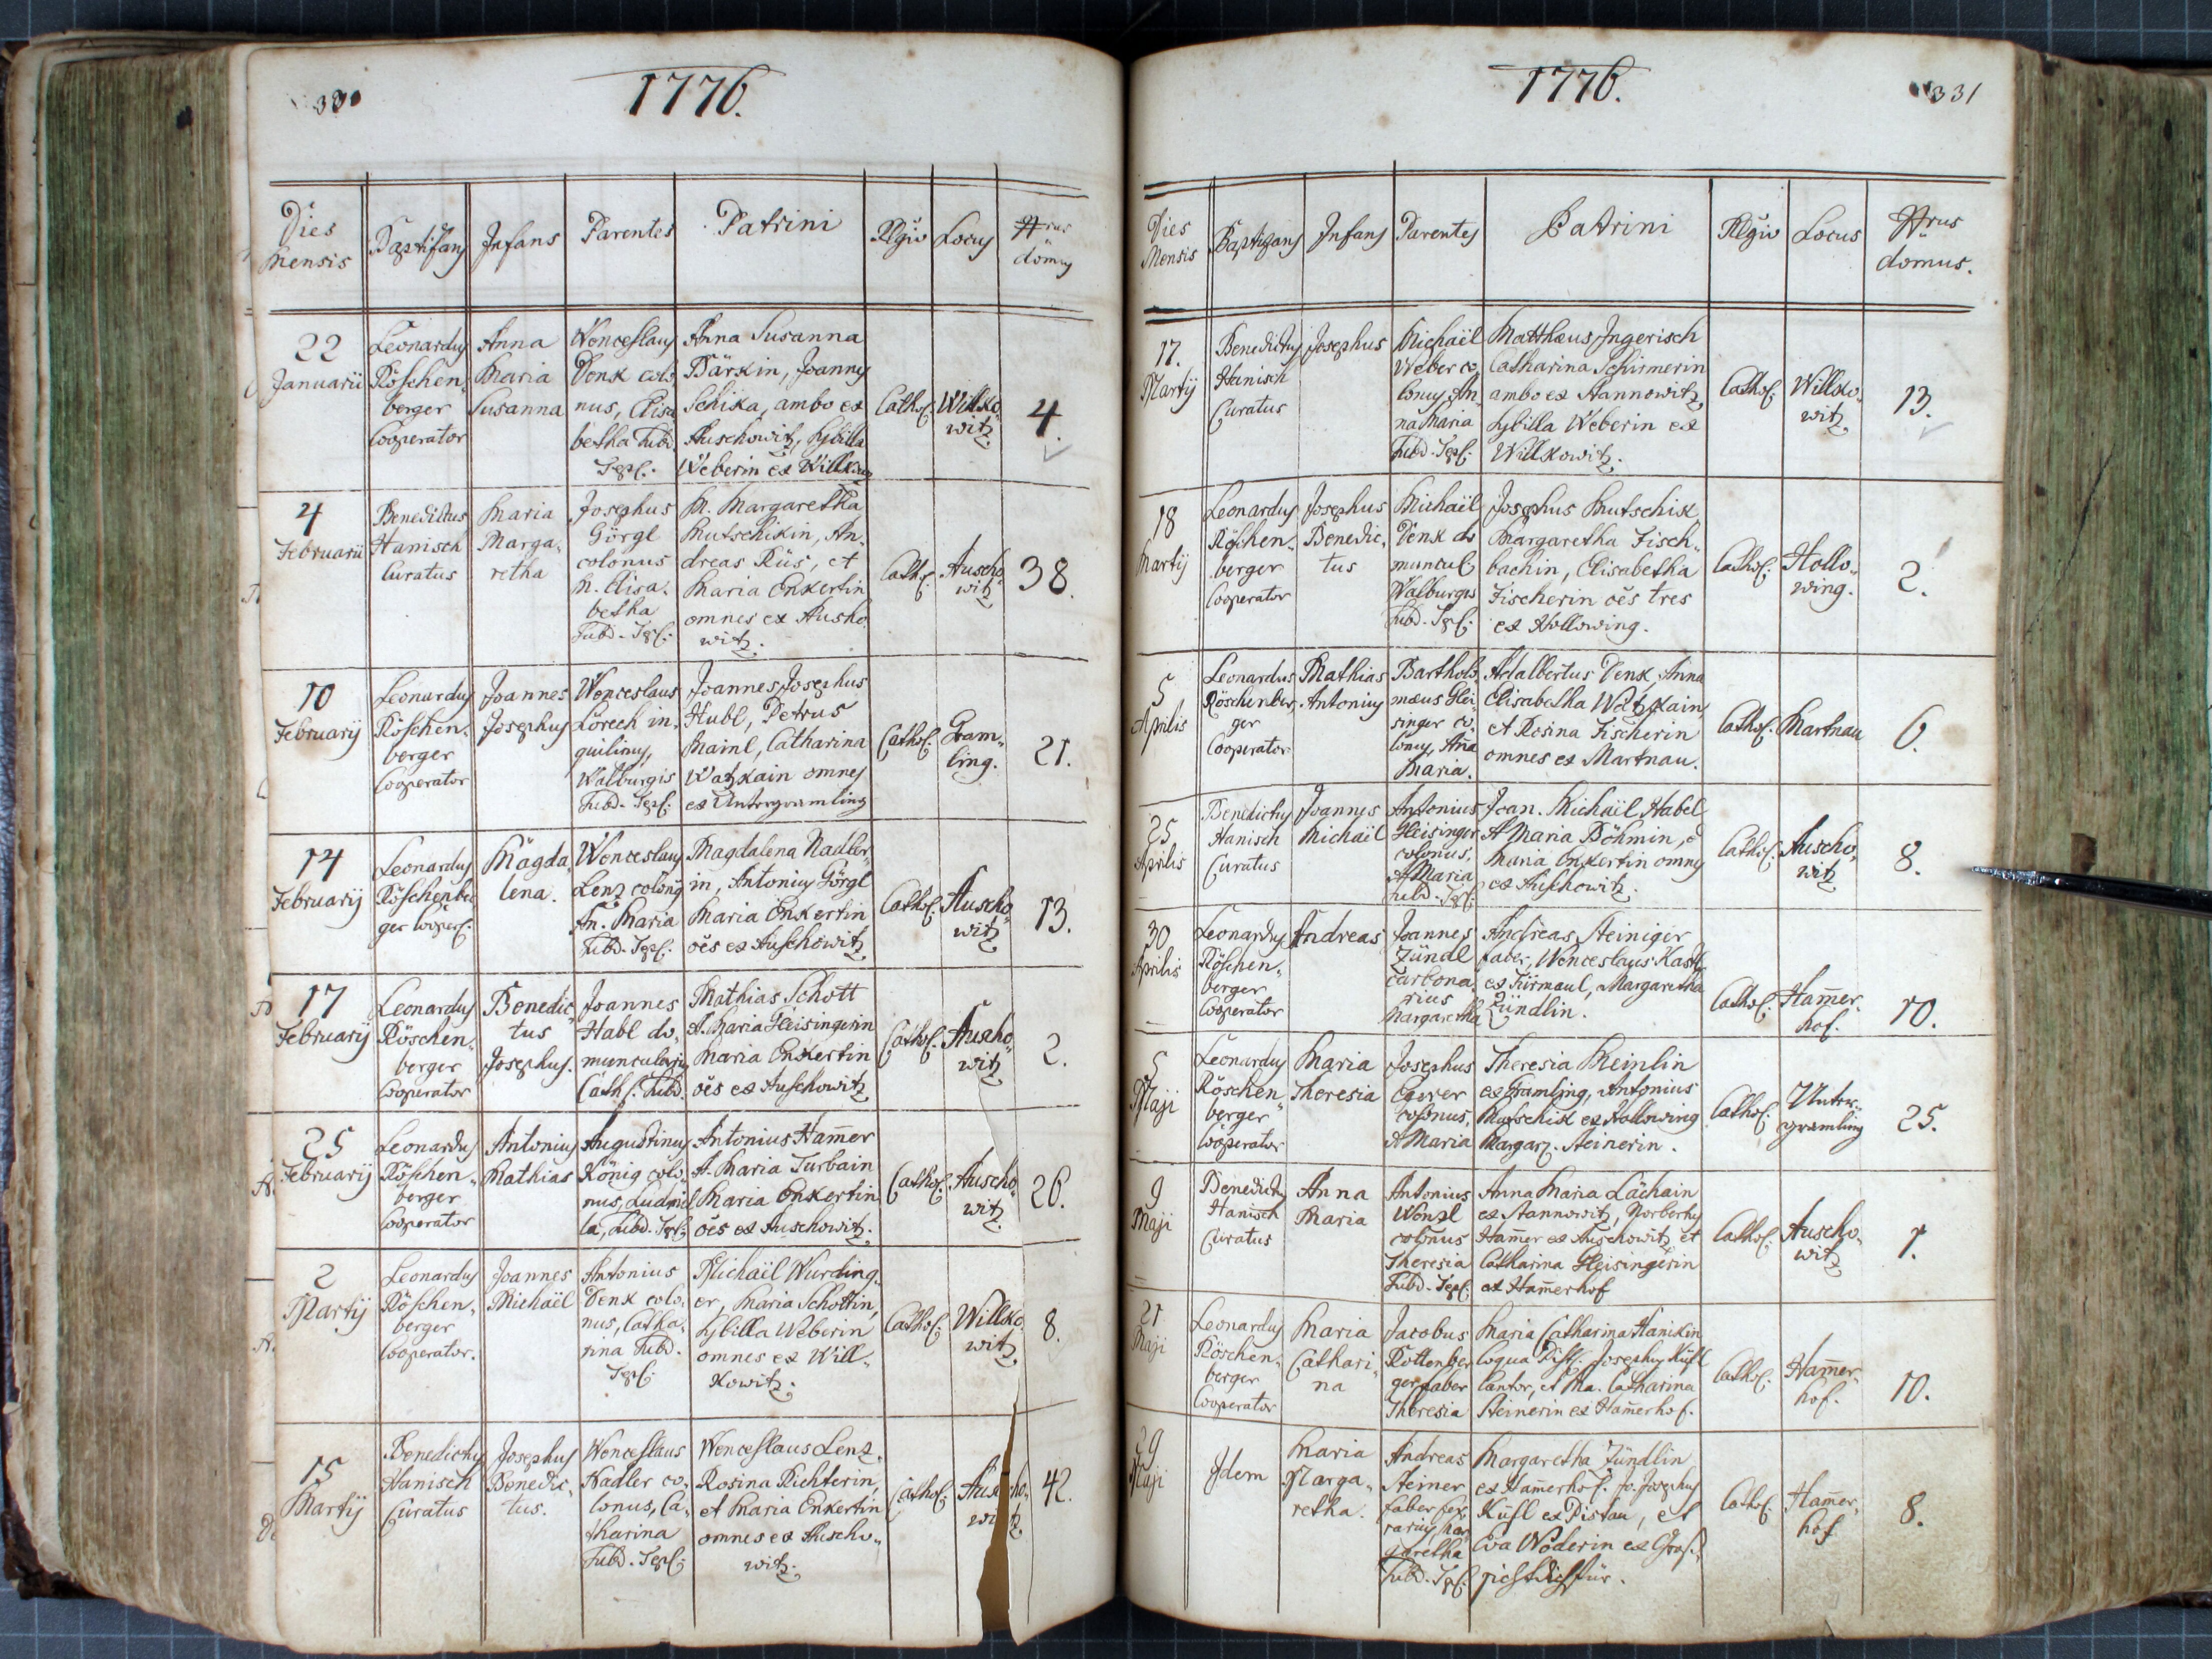 330
1776.
Dies Mensis | Baptisans | Infans | Parentes | Patrini | Rlgio | Locus | Nrus domus
22 Januarii | Leonardus Röschen„ berger Cooperator | Anna Maria Susanna | Wenceslaus Denk colo, nus, Elisa betha Subd. Tepl. | Anna Susanna Bärkin, Joannes Schika, ambo ex Auschowitz, Sybilla Weberin ex Willkow | Cathol: | Willko„ witz. | 4.
4 Februarii | Benedictus Hanisch Curatus | Maria Marga„ retha | Josephus Görgl colonus M. Elisa„ betha Subd. Tepl: | M. Margaretha Mutschikin, An„ dreas Rüs, et Maria Enkertin omnes ex Ausho witz. | Cathol: | Auscho„ witz | 38.
10 Februarij | Leonardus Röschen„ berger Cooperator | Joannes Josephus | Wenceslaus Lorech in„ quilinus, Walburgis Subd. Tepl: | Joannes Josephus Hubl, Petrus Mainl, Catharina Watzkain omnes ex Untergramling | Cathol: | Gram„ ling. | 21.
14 Februarij | Leonardus Röschenber ger Cooper: | Magda„ lena. | Wenceslaus Lenz colonus An. Maria Subd. Tepl: | Magdalena Nadler„ in, Antonius Görgl Maria Enkertin oes ex Auschowitz | Cathol: | Auscho„ witz | 13.
17 Februarij | Leonardus Röschen„ berger Cooperator | Benedic„ tus Josephus. | Joannes Habl do„ muncularius Cath. Subd. | Mathias Schott A. Maria Gleisingerin Maria Enkertin oes ex Auschowitz | Cathol: | Auscho„ witz | 2.
25 Februarij | Leonardus Röschen„ berger Cooperator | Antonius Mathias | Augustinus König colo„ nus, Ludmil la, Subd. Tepl: | Antonius Ham̄er A. Maria Turbain Maria Enkertin oes ex Auschowitz. | Cathol: | Auscho„ witz. | 26.
2 Martij | Leonardus Röschen„ berger Cooperator. | Joannes Michaël | Antonius Denk colo„ nus, Catha„ rina Subd. Tepl: | Michaël Wurding„ er, Maria Schottin, Sybilla Weberin omnes ex Will„ kowitz. | Cathol: | Willko„ witz. | 8.
15 Martij | Benedictus Hanisch Curatus | Josephus Benedic„ tus. | Wenceslaus Nadler co„ lonus, Ca„ tharina Subd. Tepl: | Wenceslaus Lenz, Rosina Richterin, et Maria Enkertin omnes ex Auscho„ witz. | Cathol: | Auscho„ witz | 42.
331
1776.
Dies Mensis | Baptizans | Infans | Parentes | Patrini | Rlgio | Locus | Nrus domus.
17. Martij | Benedictus Hanisch Curatus | Josephus | Michaël Weber co„ lonus, An„ na Maria Subd. Tepl: | Matthæus Ingerisch Catharina Schirmerin ambo ex Stannowitz, Sybilla Weberin ex Willkowitz. | Cathol: | Willko„ witz | 13.
18 Martij | Leonardus Röschen„ berger Cooperator | Josephus Benedic„ tus | Michaël Denk do muncul: Walburgis Subd. Tepl: | Josephus Mutschik Margaretha Fisch„ bachin, Elisabetha Fischerin oes tres ex Hollowing. | Cathol: | Hollo„ wing. | 2.
5 Aprilis | Leonardus Röschenber„ ger Cooperator | Mathias Antonius | Bartholo„ mæus Glei„ singer co„ lonus, Anna Maria. | Adalbertus Denk, Anna Elisabetha Watzkain, et Rosina Fischerin omnes ex Martnau. | Cathol: | Martnau | 6.
25 Aprilis | Benedictus Hanisch Curatus | Joannes Michaël | Antonius Gleisinger colonus, A Maria Subd. Tepl: | Joan. Michaël Habel A Maria Böhmin, & Maria Enkertin omnes ex Auschowitz. | Cathol: | Auscho„ witz | 8.
30 Aprilis | Leonardus Röschen„ berger Cooperator | Andreas | Joannes Zündl carbona„ rius Margaretha | Andreas Steiniger faber, Wenceslaus Kastl ex Türmaul, Margaretha Zündlin. | Cathol: | Ham̄er„ hof. | 10.
5 Maji | Leonardus Röschen„ berger Cooperator | Maria Theresia | Josephus colonus, A Maria | Theresia Meinlin ex Gramling, Antonius Mutschik ex Hollowing Margar: Steinerin. | Cathol: | Unter„ gramling | 25.
9 Maji | Benedictus Hanisch Curatus | Anna Maria | Antonius Wenzl colonus Theresia Subd. Tepl: | Anna Maria Lächain ex Stannowitz, Norbertus Ham̄er ex Auschowitz et Catharina Gleisingerin ex Ham̄erhof | Cathol: | Auscho„ witz | 1.
21 Maji | Leonardus Röschen„ berger Cooperator | Maria Cathari„ na | Jacobus Rottenber ger faber Theresia | Maria Catharina Hanikin Coqua Pist: Josephus Küfl Cantor, et Ma. Catharina Steinerin ex Ham̄erhof. | Cathol: | Ham̄er„ hof. | 10.
29 Maji | Idem | Maria Marga„ retha. | Andreas Steiner faber fer„ rarius, Mar garetha Subd. Tepl: | Margaretha Zündlin ex Ham̄erhof. Jo. Josephus Küfl ex Pistau, et Eva Wöderin ex Gros„ | Cathol: | Ham̄er„ hof | 8.